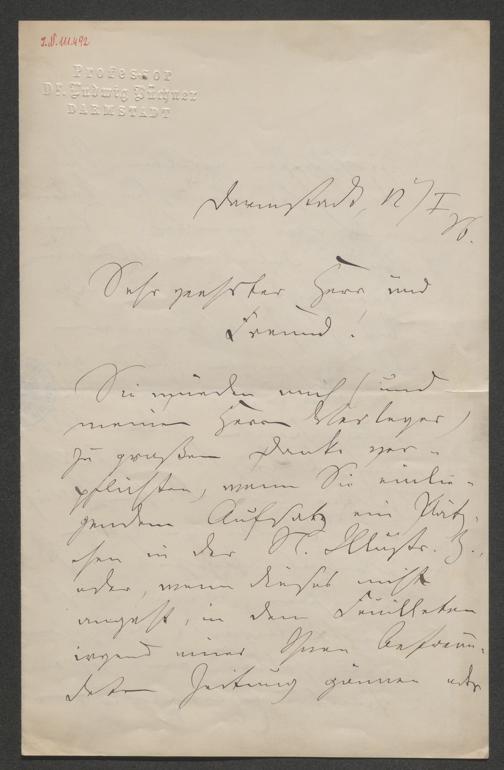 I.N. 111.492
Professor
Dr. Ludwig Büchner
DARMSTADT
Darmstadt, 12/I
76.
Sehr geehrter Herr und
Freund!
Sie würden mich (und
meinen Herrn Verleger)
zu großem Danke ver-
pflichten, wenn Sie einlie-
gendem Aufsatz ein Plätz-
chen in der N. Illustr. Z.,
oder, wenn dieses nicht
angeht, in dem Feuilleton
irgend einer Ihnen befreun-
deten Zeitung gönnen oder